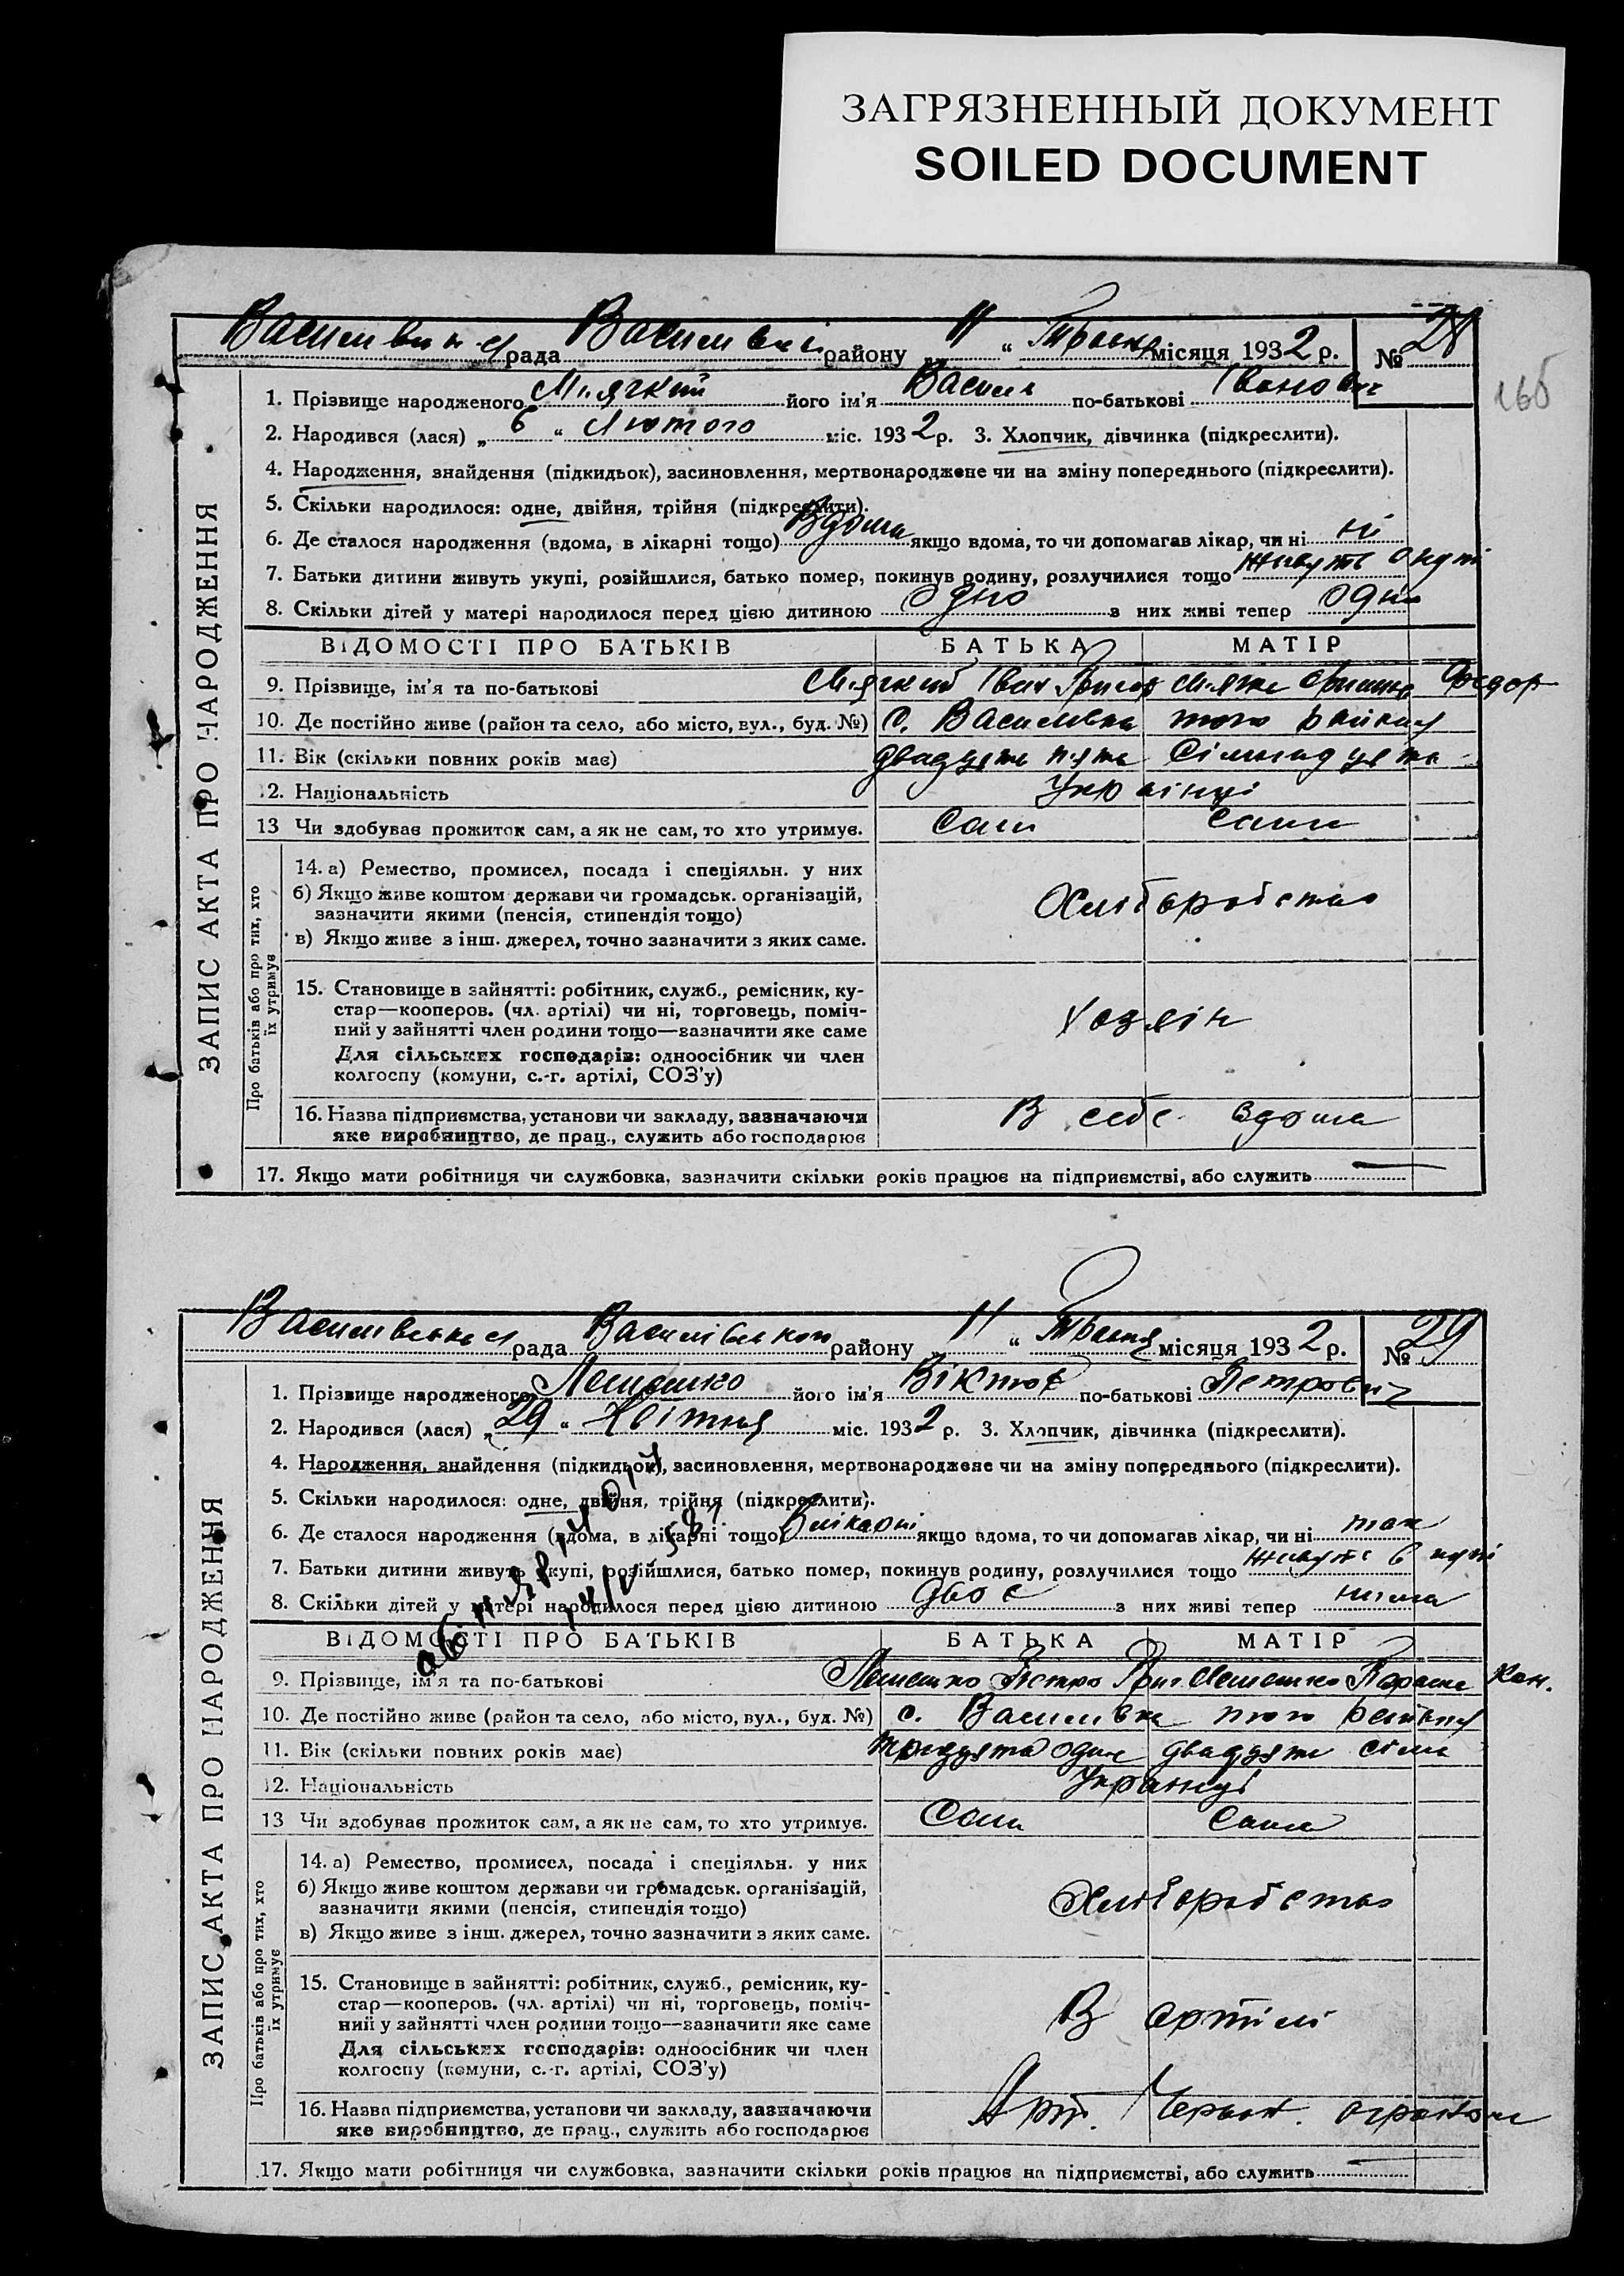 ЗАГРЯЗНЕННЫЙ ДОКУМЕНТ
SOILED DOCUMENT
рада Василівс району „11“ Травня місяця 1932 р. № 28
166
1. Прізвище народженого Мягкий його ім'я Василь по-батькові Іванович
2. Народився (лася) „6“ Лютого міс. 1932 р. 3. Хлопчик, дівчинка (підкреслити).
4. Народження, знайдення (підкидьок), засиновлення, мертвонароджене чи на зміну попереднього (підкреслити).
5. Скільки народилося: одне, двійня, трійня (підкреслити).
6. Де сталося народження (вдома, в лікарні тощо) Вдома якщо вдома, то чи допомагав лікар, чи ні ні
7. Батьки дитини живуть укупі, розійшлися, батько помер, покинув родину, розлучилися тощо живуть окупі
8. Скільки дітей у матері народилося перед цією дитиною Одно з них живі тепер Одно
ВІДОМОСТІ ПРО БАТЬКІВ БАТЬКА МАТІР
9. Прізвище, ім'я та по-батькові Мягкий Іван Григор Мягка Федор
10. Де постійно живе (район та село, або місто, вул., буд. №) с. Василівка того району
11. Вік (скільки повних років має) двадцять пять Сімнадцять
12. Національність Українці
13 Чи здобуває прожиток сам, а як не сам, то хто утримує. Сам Сама
ЗАПИС АКТА ПРО НАРОДЖЕННЯ
Про батьків або про тих, хто їх утримує
14. а) Ремество, промисел, посада і спеціяльн. у них
б) Якщо живе коштом держави чи громадськ. організацій,
зазначити якими (пенсія, стипендія тощо) Хліборобство
в) Якщо живе з інш. джерел, точно зазначити з яких саме.
15. Становище в зайнятті: робітник, служб., ремісник, ку-
стар—кооперов. (чл. артілі) чи ні, торговець, поміч-
ний у зайнятті член родини тощо—зазначити яке саме Хозяін
Для сільських господарів: одноосібник чи член
колгоспу (комуни, с.-г. артілі, СОЗ'у)
16. Назва підприємства, установи чи закладу, зазначаючи В себе вдома
яке виробництво, де прац., служить або господарює
17. Якщо мати робітниця чи службовка, зазначити скільки років працює на підприємстві, або служить —
Василівська рада Василівського району „11“ Травня місяця 1932 р. № 29
1. Прізвище народженого Лемешко його ім'я Віктор по-батькові Петрович
2. Народився (лася) „29“ Квітня міс. 1932 р. 3. Хлопчик, дівчинка (підкреслити).
4. Народження, знайдення (підкидьок), засиновлення, мертвонароджене чи на зміну попереднього (підкреслити).
5. Скільки народилося: одне, двійня, трійня (підкреслити).
6. Де сталося народження (вдома, в лікарні тощо) В лікарні якщо вдома, то чи допомагав лікар, чи ні так
7. Батьки дитини живуть укупі, розійшлися, батько помер, покинув родину, розлучилися тощо живуть в купі
8. Скільки дітей у матері народилося перед цією дитиною двоє з них живі тепер нема
ВІДОМОСТІ ПРО БАТЬКІВ БАТЬКА МАТІР
9. Прізвище, ім'я та по-батькові Лемешко Петро Григ Лемешко Параска Кон.
10. Де постійно живе (район та село, або місто, вул., буд. №) с. Василівка того району
11. Вік (скільки повних років має) тридцять один двадцять сім
12. Національність Українці
13 Чи здобуває прожиток сам, а як не сам, то хто утримує. Сам Сама
ЗАПИС АКТА ПРО НАРОДЖЕННЯ
Про батьків або про тих, хто їх утримує
14. а) Ремество, промисел, посада і спеціяльн. у них
б) Якщо живе коштом держави чи громадськ. організацій,
зазначити якими (пенсія, стипендія тощо) Хліборобство
в) Якщо живе з інш. джерел, точно зазначити з яких саме.
15. Становище в зайнятті: робітник, служб., ремісник, ку-
стар—кооперов. (чл. артілі) чи ні, торговець, поміч-
ний у зайнятті член родини тощо—зазначити яке саме В артілі
Для сільських господарів: одноосібник чи член
колгоспу (комуни, с.-г. артілі, СОЗ'у)
16. Назва підприємства, установи чи закладу, зазначаючи Арт. Червон.
яке виробництво, де прац., служить або господарює
17. Якщо мати робітниця чи службовка, зазначити скільки років працює на підприємстві, або служить —